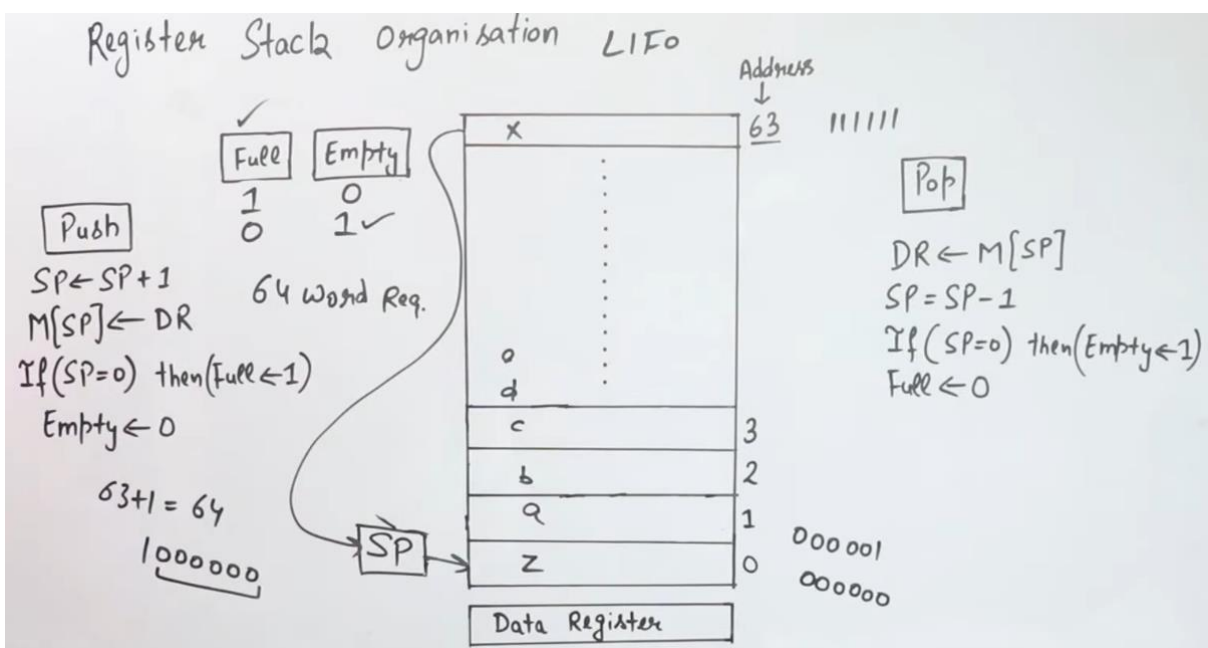 Register Stack Organisation LIFO
Address
Full Empty
1 0
0 1
Push
SP←SP+1
M[SP]←DR
If(SP=0) then(Full←1)
Empty←0
64 Word Reg.
63+1=64
1000000
SP
x 63 111111
o
d
c 3
b 2
a 1 000001
z 0 000000
Data Register
Pop
DR←M[SP]
SP=SP-1
If(SP=0) then(Empty←1)
Full←0